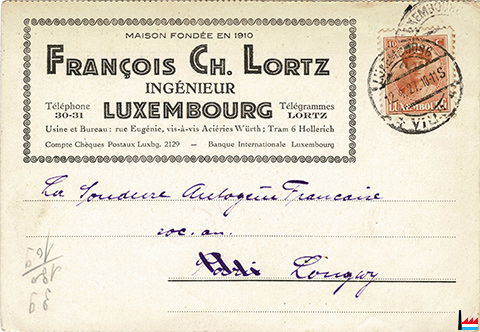 MAISON FONDÉE EN 1910
FRANÇOIS CH. LORTZ
INGÉNIEUR
Téléphone
30-31
LUXEMBOURG
Télégrammes
LORTZ
Usine et Bureau: rue Eugénie, vis-à-vis Aciéries Würth; Tram 6 Hollerich
Compte Chèques Postaux Luxbg. 2129 — Banque Internationale Luxembourg
LUXEMBOURG
La Soudure Autogène Francaise
soc. an.
Longwy